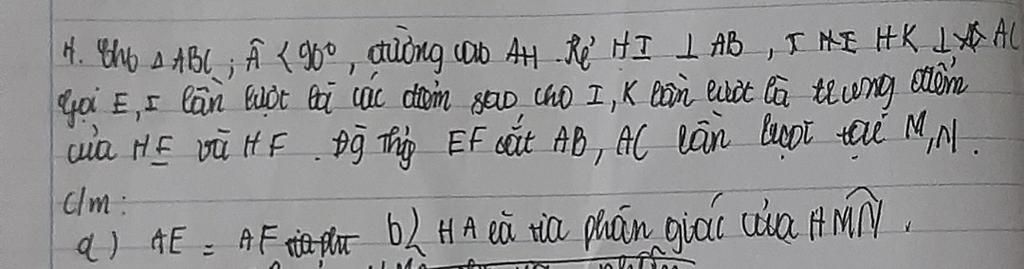 4. Cho △ABC; Â < 90°, đường cao AH. Kẻ HI ⊥ AB, HK ⊥ AC
Gọi E, F lần lượt là các điểm sao cho I, K lần lượt là trung điểm
của HE và HF. Đg thg EF cắt AB, AC lần lượt tại M, N.
C/m:
a) AE = AF b) HA là tia phân giác của HMN.